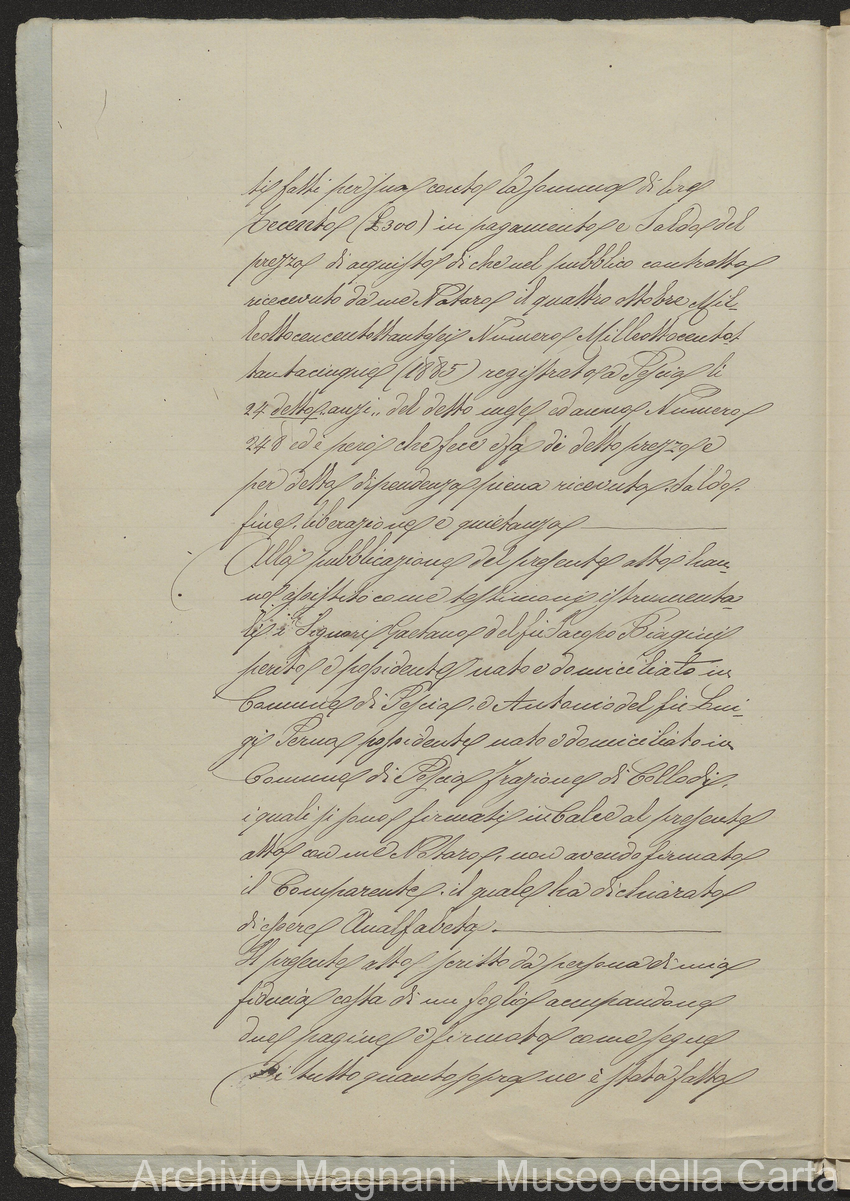 tisfatti per suo conto la somma di lire
trecento (£300) in pagamento e Saldo del
prezzo di acquisto di che nel pubblico contratto
ricevuto da me Notaro il quattro ottobre Mil-
leottocentottantasei Numero Milleottocentot-
tantacinque (1885) registrato a Pescia li
24 detto, anzi, del detto mese ed anno Numero
248 ed è perciò che fece e fa di detto prezzo e
per detta dipendenza piena ricevuta, saldo,
fine, liberazione e quietanza
Alla pubblicazione del presente atto han-
no assistito come testimoni istrumenta-
li i Signori Gaetano del fu Jacopo Biagini
perito e possidente nato e domiciliato in
Comune di Pescia, e Antonio del fu Lui-
gi Perna possidente nato e domiciliato in
Comune di Pescia frazione di Collodi,
i quali si sono firmati in Calce al presente
atto con me Notaro, non avendo firmato
il Comparente, il quale ha dichiarato
di essere Analfabeta.
Il presente atto scritto da persona di mia
fiducia costa di un foglio occupandone
due pagine è firmato come segue
Di tutto quanto sopra ne è stata fatta
Archivio Magnani - Museo della Carta